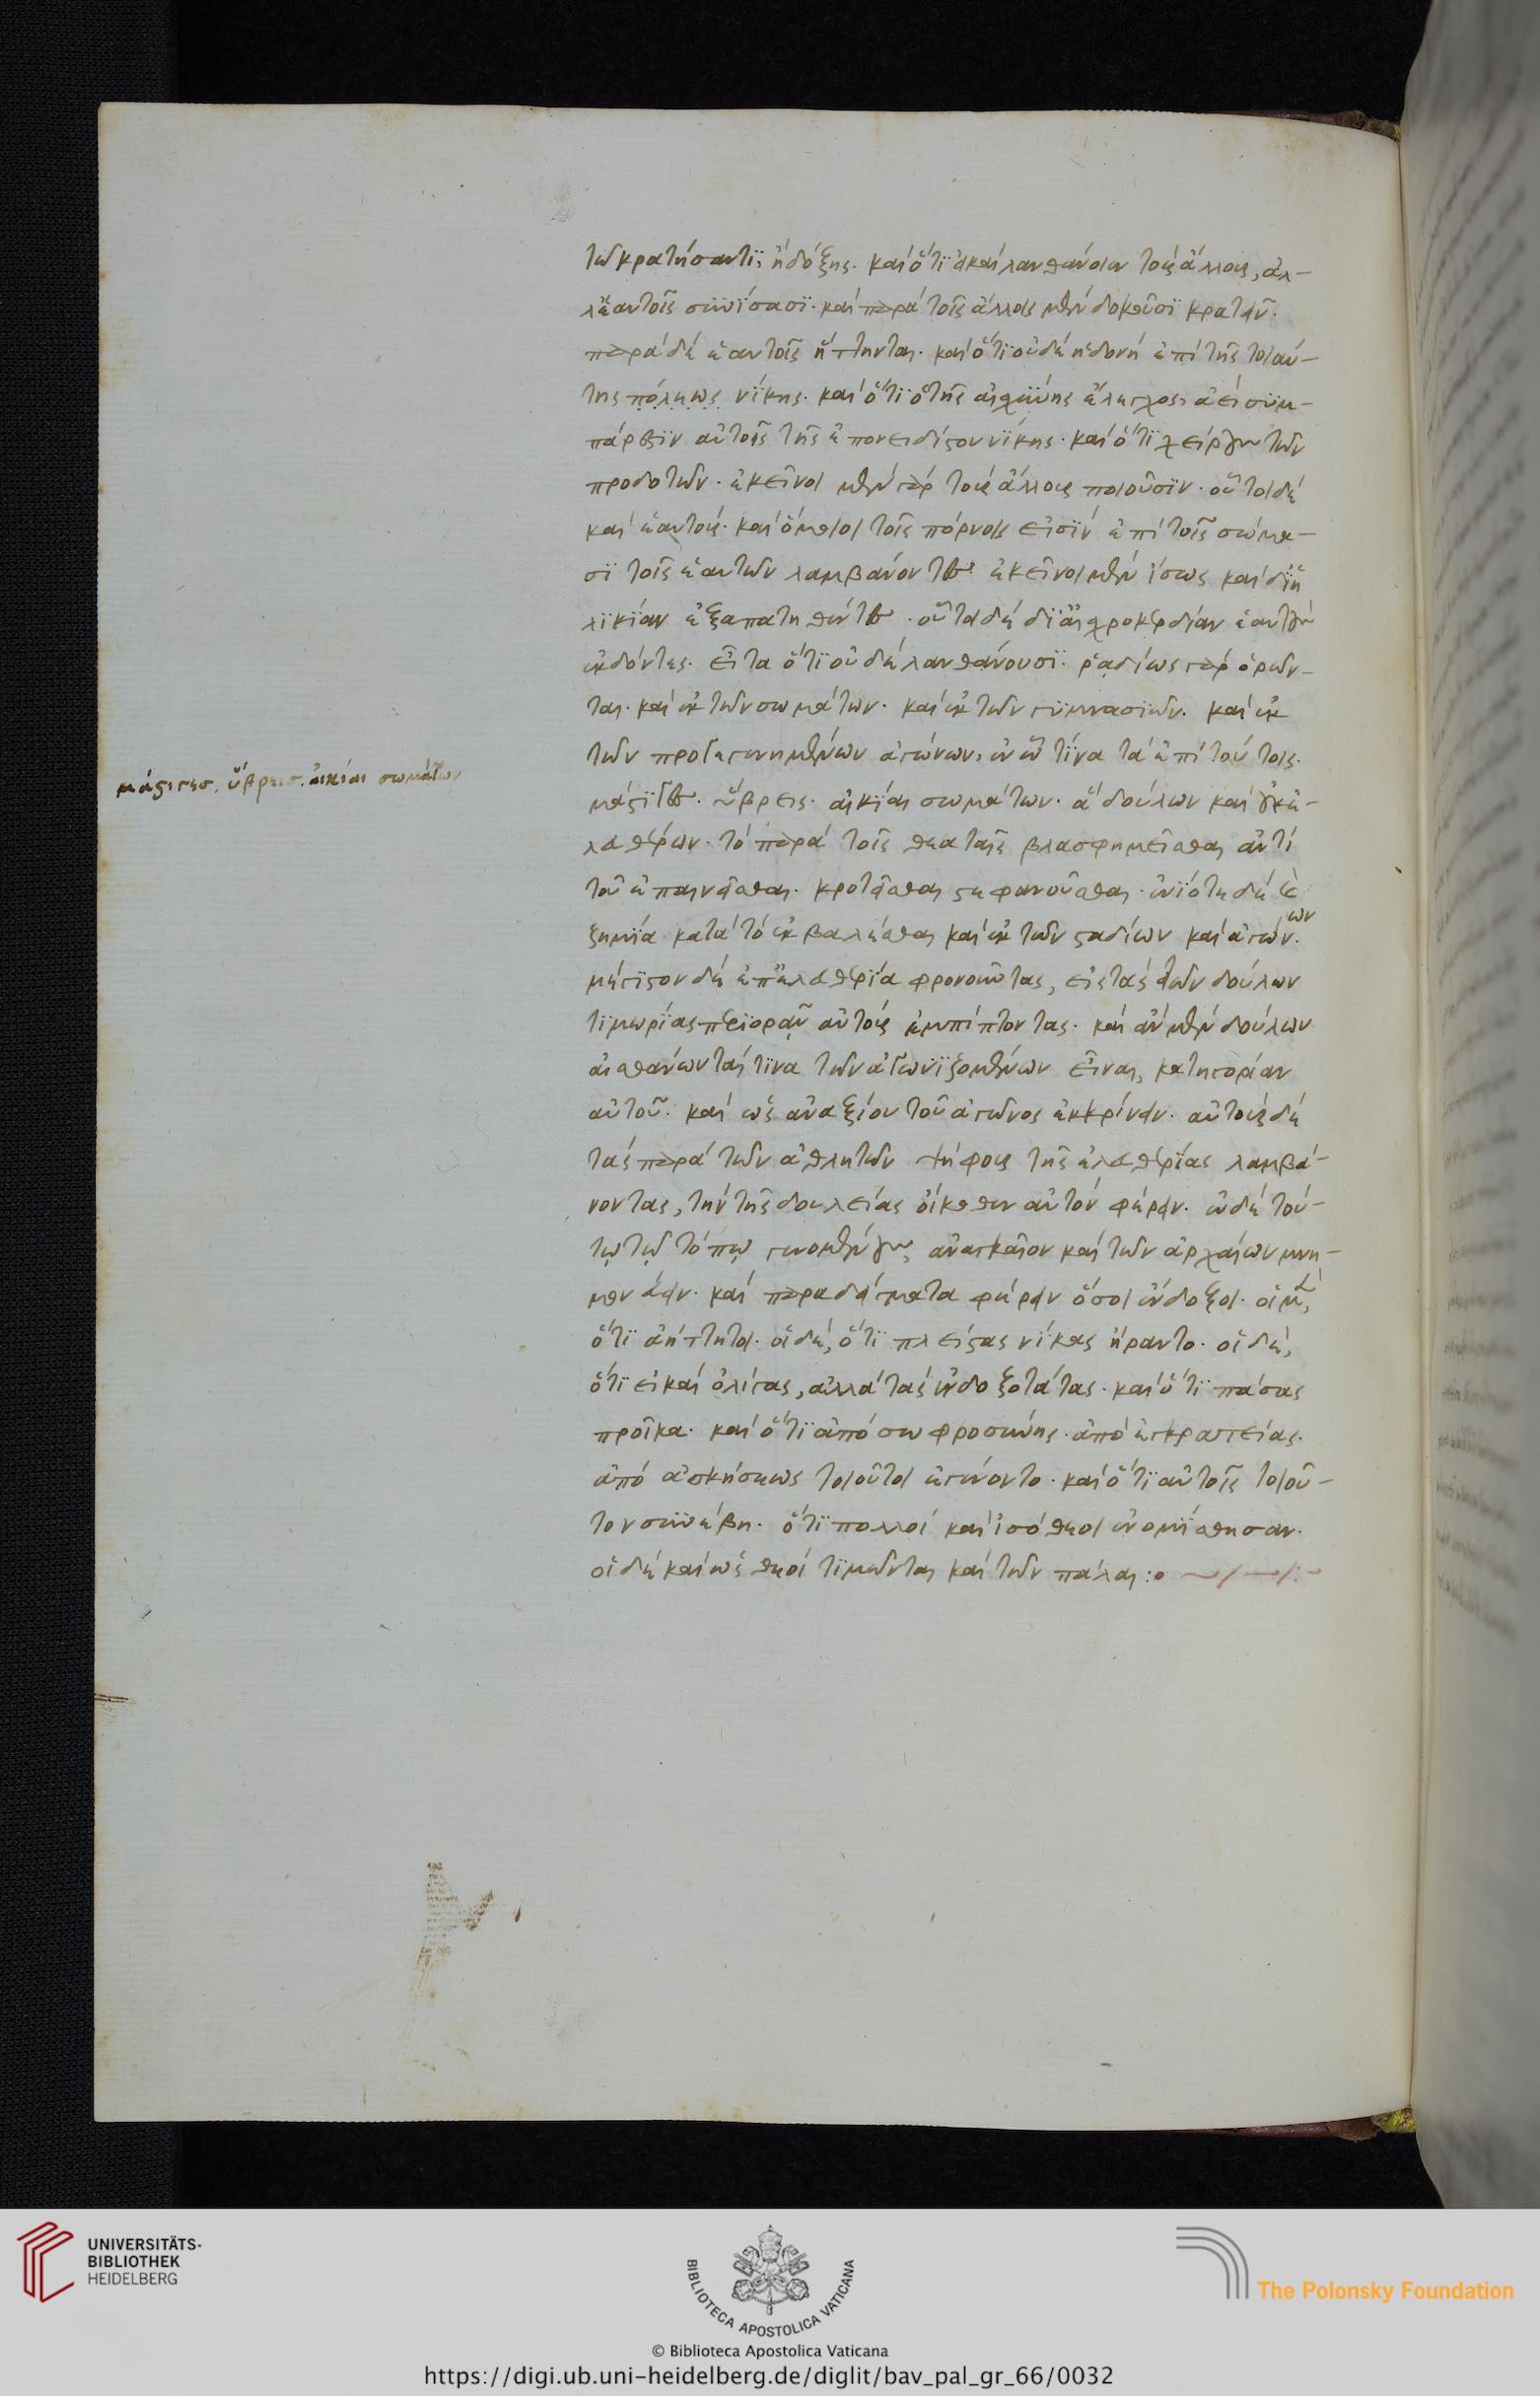 τῶ κρατήσαντϊ, ἡ δόξης. καὶ ὅτϊ ἀκαὶ λανθάνοιεν τοὺς ἄλλους, ἀλ-
λ' ἑαυτοῖς συνΐσασϊ. καὶ παρὰ τοῖς ἄλλοις μὲν δοκοῦσϊ κρατεῖν.
παρὰ δὲ ἑαυτοῖς ἥττηνται. καὶ ὅτϊ οὐδὲ ἡδονὴ ἐπὶ τῆς τοιαύ-
της πόλεως νίκης. καὶ ὅτϊ ὁ τῆς αἰσχύνης ἔλεγχος, ἀεὶ σϋμ-
πάρεστϊν αὐτοῖς τῆς ἐπονειδίστου νϊκης. καὶ ὅτϊ χείρους τῶν
προδοτῶν. ἐκεῖνοι μὲν γὰρ τοὺς ἄλλους ποιοῦσϊν. οὗτοι δὲ
καὶ ἑαυτούς. καὶ ὅμοιοι τοῖς πόρνοις εἰσϊν ἐπὶ τοῖς σώμα-
σϊ τοῖς ἑαυτῶν λαμβάνοντες. ἐκεῖνοι μὲν ἴσως καὶ δϊ' ἡ
λϊκίαν ἐξαπατηθέντες. οὗτοι δὲ δϊ' αἰσχροκέρδιαν ἑαυτοὺς
ἐκδόντες. εἶτα ὅτϊ οὐδὲ λανθάνουσϊ. ῥαδίως γὰρ ὁρῶν-
ται. καὶ ἐκ τῶν σωμάτων. καὶ ἐκ τῶν γϋμνασίων. καὶ ἐκ
τῶν προγεγενημένων ἀγώνων, ἐν ὧ τϊνα τὰ ἐπὶ τούτοις.
μάστϊγες. ὕβρεις. αἰκίαι σωμάτων. ἃ δούλων καὶ οὐκ ἐ-
λευθέρων. τὸ παρὰ τοῖς θεαταῖς βλασφημεῖσθαι ἀντὶ
τοῦ ἐπαινεῖσθαι. κροτεῖσθαι στεφανοῦσθαι. ἐνϊότε δὲ καὶ
ζημϊα κατὰ τὸ ἐκβαλέσθαι καὶ ἐκ τῶν σταδίων καὶ ἀγώνων.
μέγϊστον δὲ ἐπ' ἐλευθερϊα φρονοῦντας, εἰς τὰς τῶν δούλων
τϊμωρίας περϊορᾶν αὐτοὺς ἐμπίπτοντας. καὶ ἂν μὲν δούλων
αἰσθάνωνταί τϊνα τῶν ἀγωνϊζομένων εἶναι, κατηγορίαν
αὐτοῦ. καὶ ὡς ἀναξίου τοῦ ἀγῶνος ἐκκρίνειν. αὐτοὺς δὲ
τὰς παρὰ τῶν ἀθλητῶν ψήφους τῆς ἐλευθερίας λαμβά-
νοντας, τὴν τῆς δουλείας οἴκοθεν αὐτὸν φέρειν. ὧδε τού-
τῳ τῷ τόπῳ γενομένους, ἀναγκαῖον καὶ τῶν ἀρχαίων μνη-
μονεύειν. καὶ παραδείγματα φέρειν ὅσοι ἔνδοξοι. οἱ μὲν,
ὅτϊ ἀήττητοι. οἱ δὲ, ὅτϊ πλείστας νίκας ἤραντο. οἱ δὲ,
ὅτϊ εἰ καὶ ὀλίγας, ἀλλὰ τὰς ἐνδοξοτάτας. καὶ ὅτϊ πάσας
προῖκα. καὶ ὅτϊ ἀπὸ σωφροσύνης. ἀπὸ ἐγκρατείας.
ἀπὸ ἀσκήσεως τοιοῦτοι ἐγένοντο. καὶ ὅτϊ αὐτοῖς τοιοῦ-
τον συνέβη. ὅτϊ πολλοὶ καὶ ἰσόθεοι ἐνομϊσθησαν.
οἱ δὲ καὶ ὡς θεοὶ τϊμῶνται καὶ τῶν πάλαι :
μάστιγες. ὕβρεισ. ἀικίαι σωμάτων
UNIVERSITÄTS-
BIBLIOTHEK
HEIDELBERG
BIBLIOTECA APOSTOLICA VATICANA
The Polonsky Foundation
© Biblioteca Apostolica Vaticana
https://digi.ub.uni-heidelberg.de/diglit/bav_pal_gr_66/0032